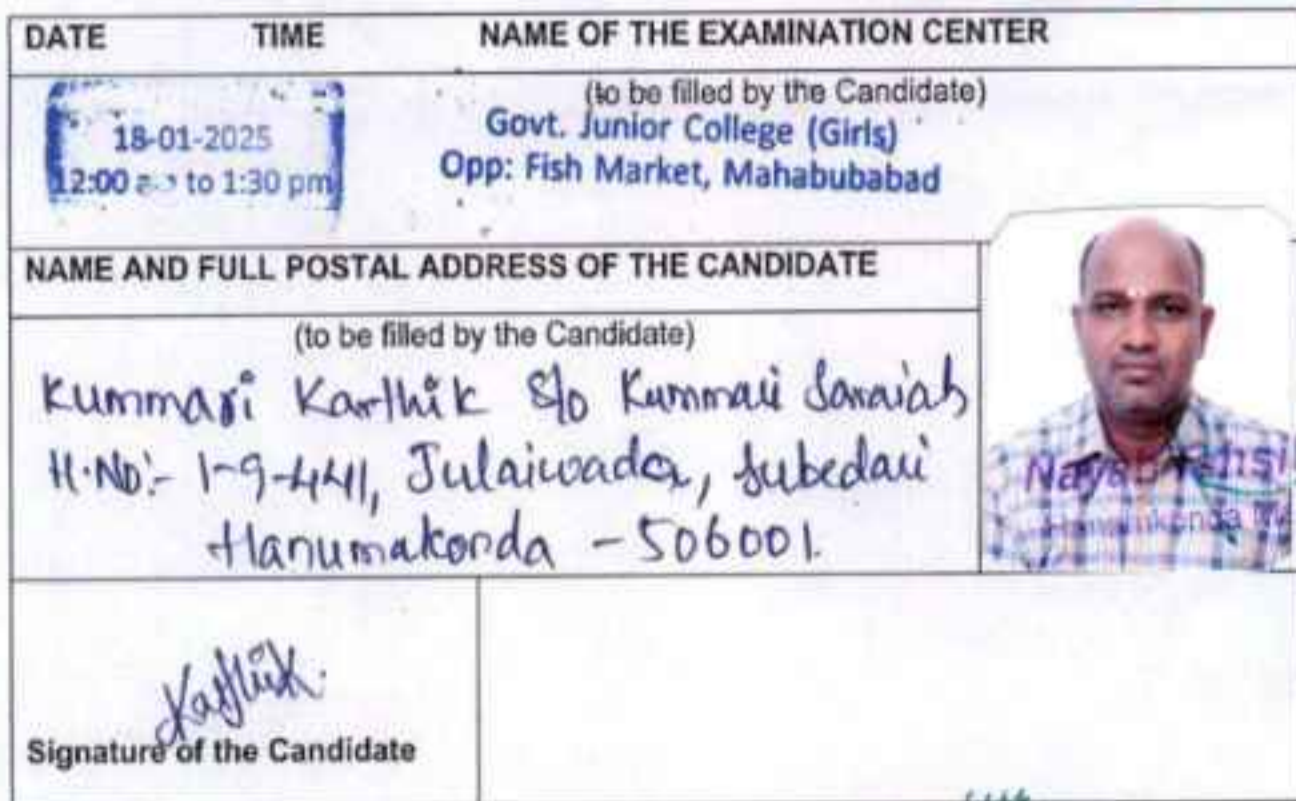 DATE TIME NAME OF THE EXAMINATION CENTER
(to be filled by the Candidate)
18-01-2025
12:00 to 1:30 pm
Govt. Junior College (Girls)
Opp: Fish Market, Mahabubabad
NAME AND FULL POSTAL ADDRESS OF THE CANDIDATE
(to be filled by the Candidate)
Kummari Karthik S/o Kummari Saraiah
H.No:- 1-9-441, Julaiwada, Subedari
Hanumakonda - 506001.
Nayab Tahsi
Hanumkonda
Karthik.
Signature of the Candidate